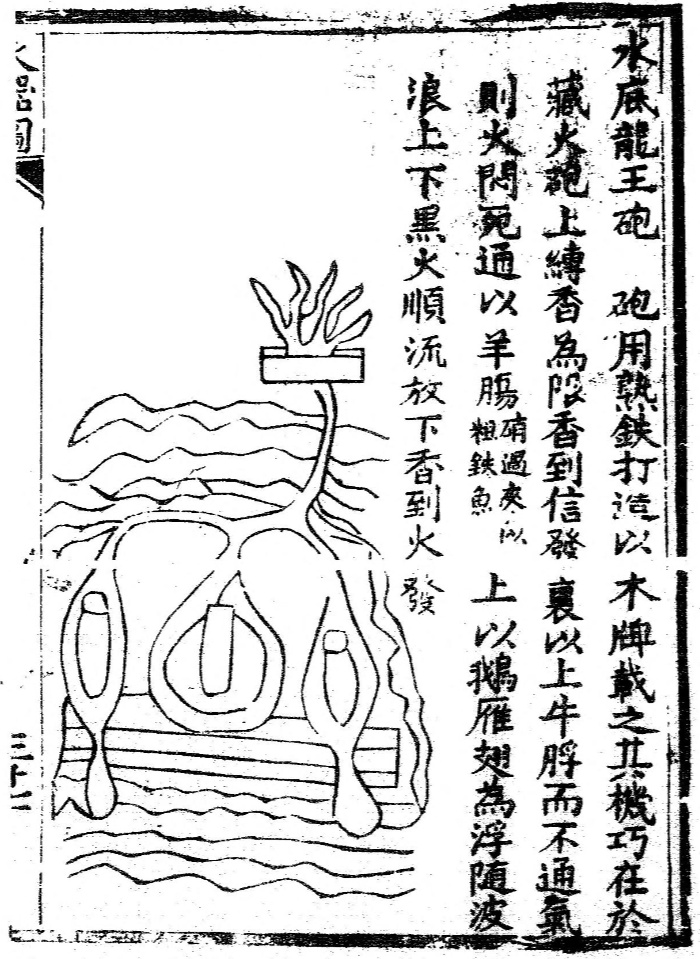 水底龍王砲　砲用熟鉄打造以木牌載之其機巧在於
藏火砲上縛香為限香到信發裏以上牛脬而不通氣
則火悶死通以羊腸硝過夾以粗鉄魚上以鵝雁翅為浮随波
浪上下黑火順流放下香到火發
火器圖
三十二